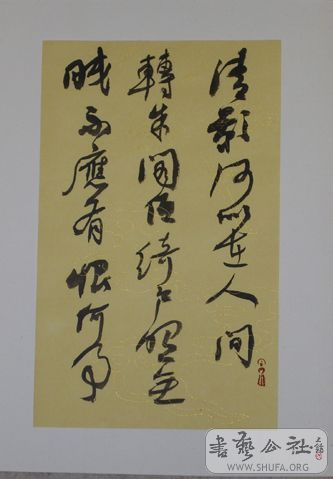 清影何似在人間
轉朱閣低綺户照無
眠不應有恨何事
書藝公社
WWW.SHUFA.ORG